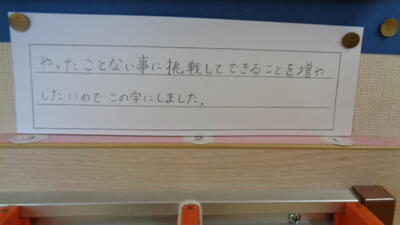 やったことない事に挑戦してできることを増や
したいのでこの字にしました。